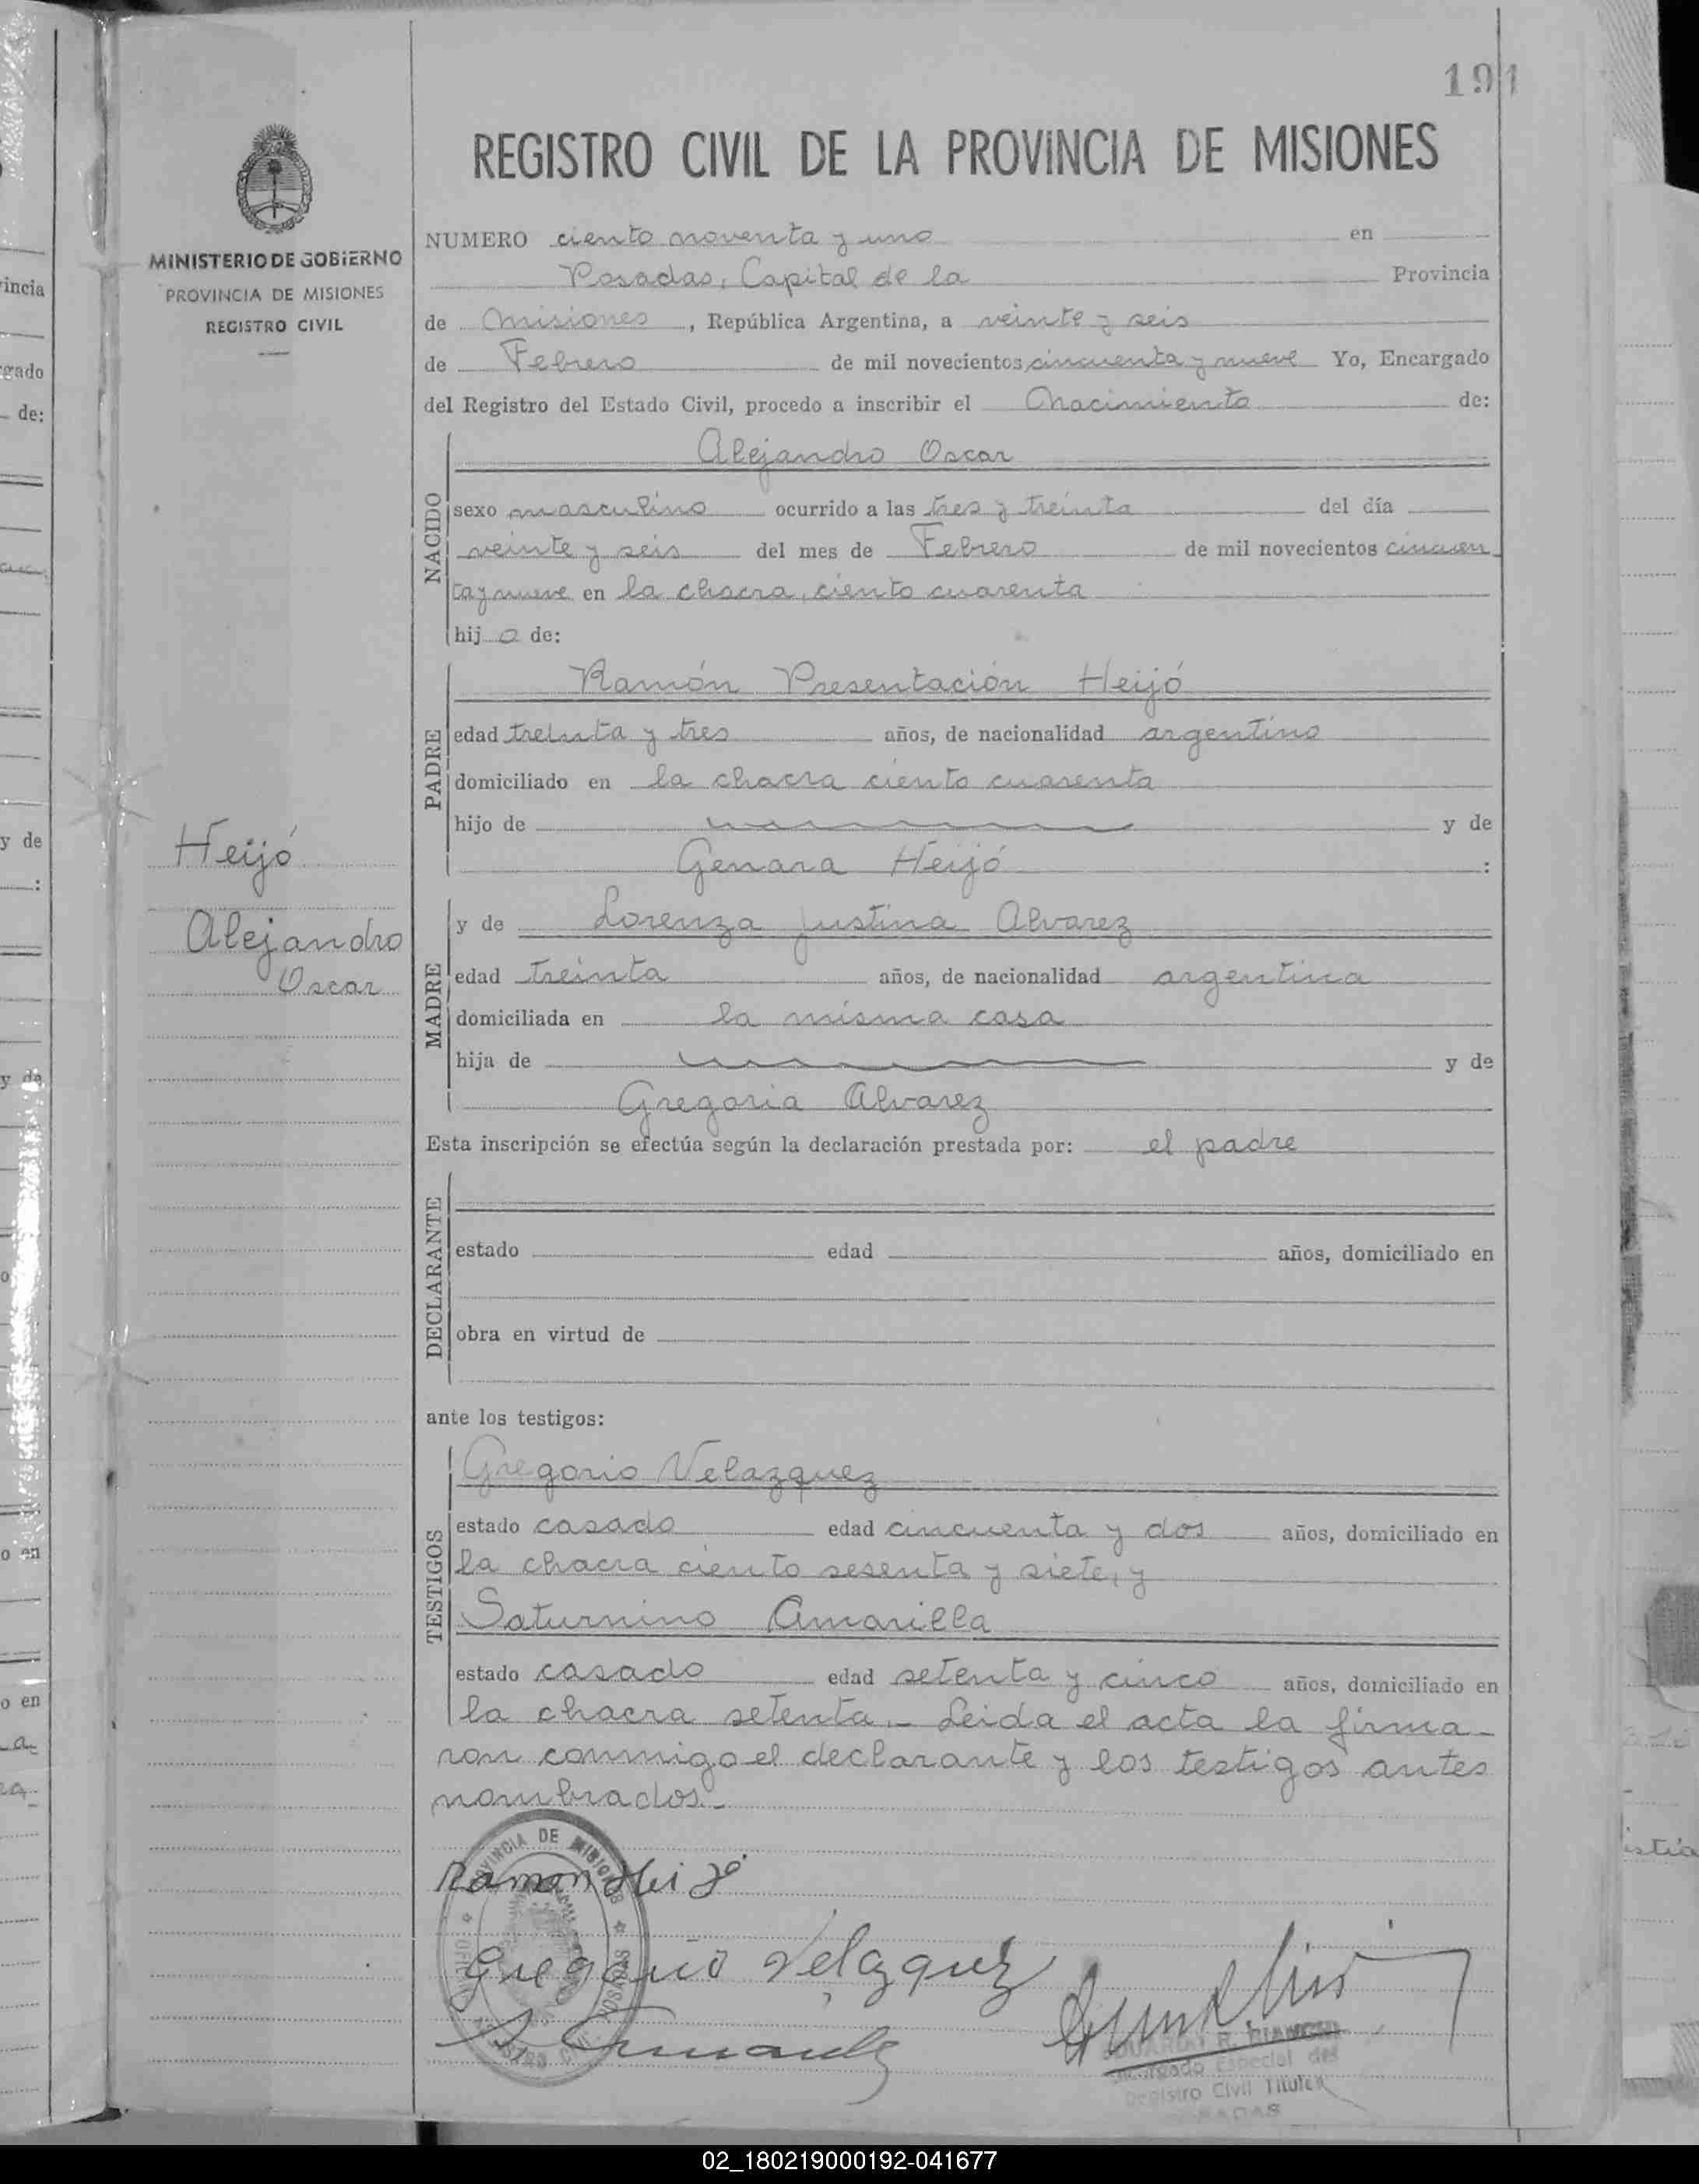 191
REGISTRO CIVIL DE LA PROVINCIA DE MISIONES
MINISTERIO DE GOBIERNO
PROVINCIA DE MISIONES
REGISTRO CIVIL
NUMERO ciento noventa y uno en
Posadas, Capital de la Provincia
de Misiones, República Argentina, a veinte y seis
de Febrero de mil novecientos cincuenta y nueve Yo, Encargado
del Registro del Estado Civil, procedo a inscribir el Nacimiento de:
NACIDO
Alejandro Oscar
sexo masculino ocurrido a las tres y treinta del día
veinte y seis del mes de Febrero de mil novecientos cincuen
ta y nueve en la chacra, ciento cuarenta
hijo de:
PADRE
Ramón Presentación Heijó
edad treinta y tres años, de nacionalidad argentino
domiciliado en la chacra ciento cuarenta
hijo de y de
Genara Heijó :
Heijó
Alejandro
Oscar
MADRE
y de Lorenza Justina Alvarez
edad treinta años, de nacionalidad argentina
domiciliada en la misma casa
hija de y de
Gregoria Alvarez
Esta inscripción se efectúa según la declaración prestada por: el padre
DECLARANTE
estado edad años, domiciliado en
obra en virtud de
ante los testigos:
TESTIGOS
Gregorio Velazquez
estado casado edad cincuenta y dos años, domiciliado en
la chacra ciento sesenta y siete, y
Saturnino Amarilla
estado casado edad setenta y cinco años, domiciliado en
la chacra setenta.- Leida el acta la firma-
ron conmigo el declarante y los testigos antes
nombrados.-
PROVINCIA DE MISIONES
POSADAS
Ramon Heijó
Gregorio Velazquez
R. BIANCHI
Encargado Especial del
Registro Civil Titular
POSADAS
02_180219000192-041677